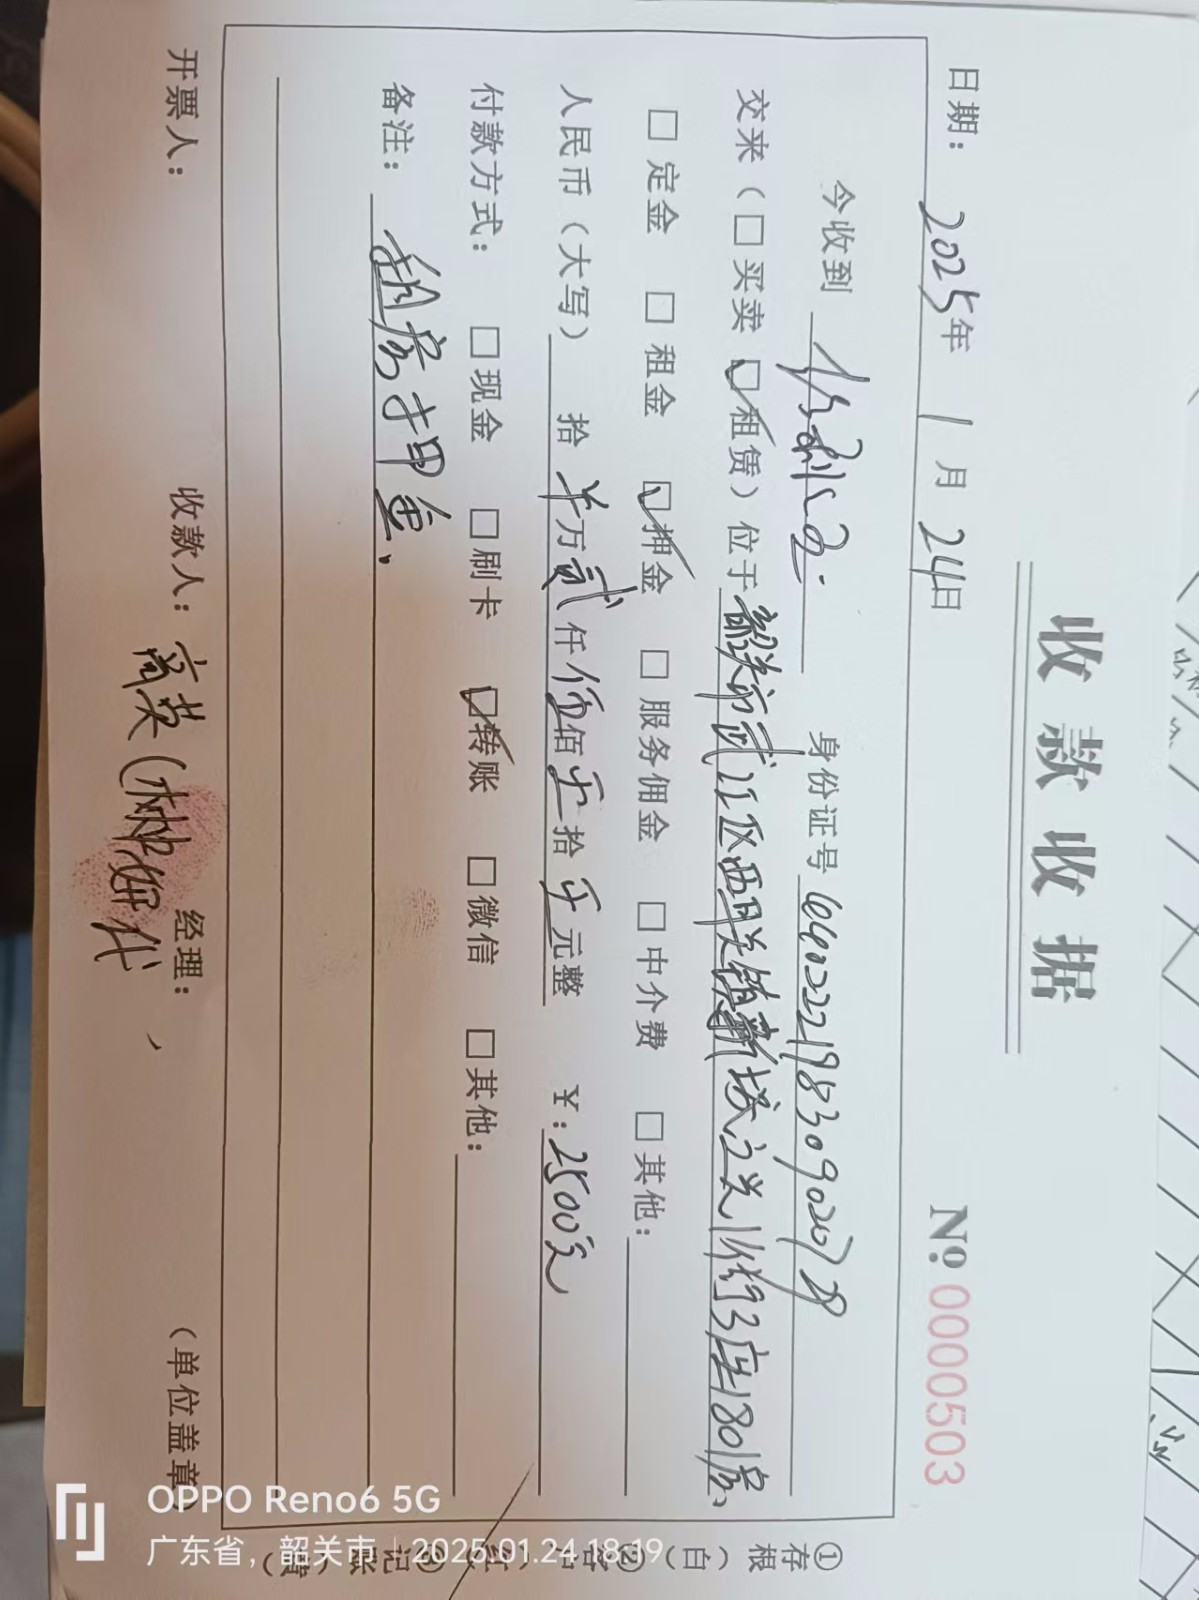 收款收据
№:0000503
日期: 2025年 1月 24日
今收到 身份证号 440227198309020728
交来(□买卖 ☑租赁)位于韶关市武江区西联镇新城之光1栋93座1801房、
□定金 □租金 ☑押金 □服务佣金 □中介费 □其他:
人民币(大写) 拾 万贰仟伍佰 拾 元整 ¥:2500元
付款方式: □现金 □刷卡 ☑转账 □微信 □其他:
备注: 租房押金、
开票人: 收款人: 经理: (单位盖章)
①存根(白)
OPPO Reno6 5G
广东省,韶关市 2025.01.24 18:19